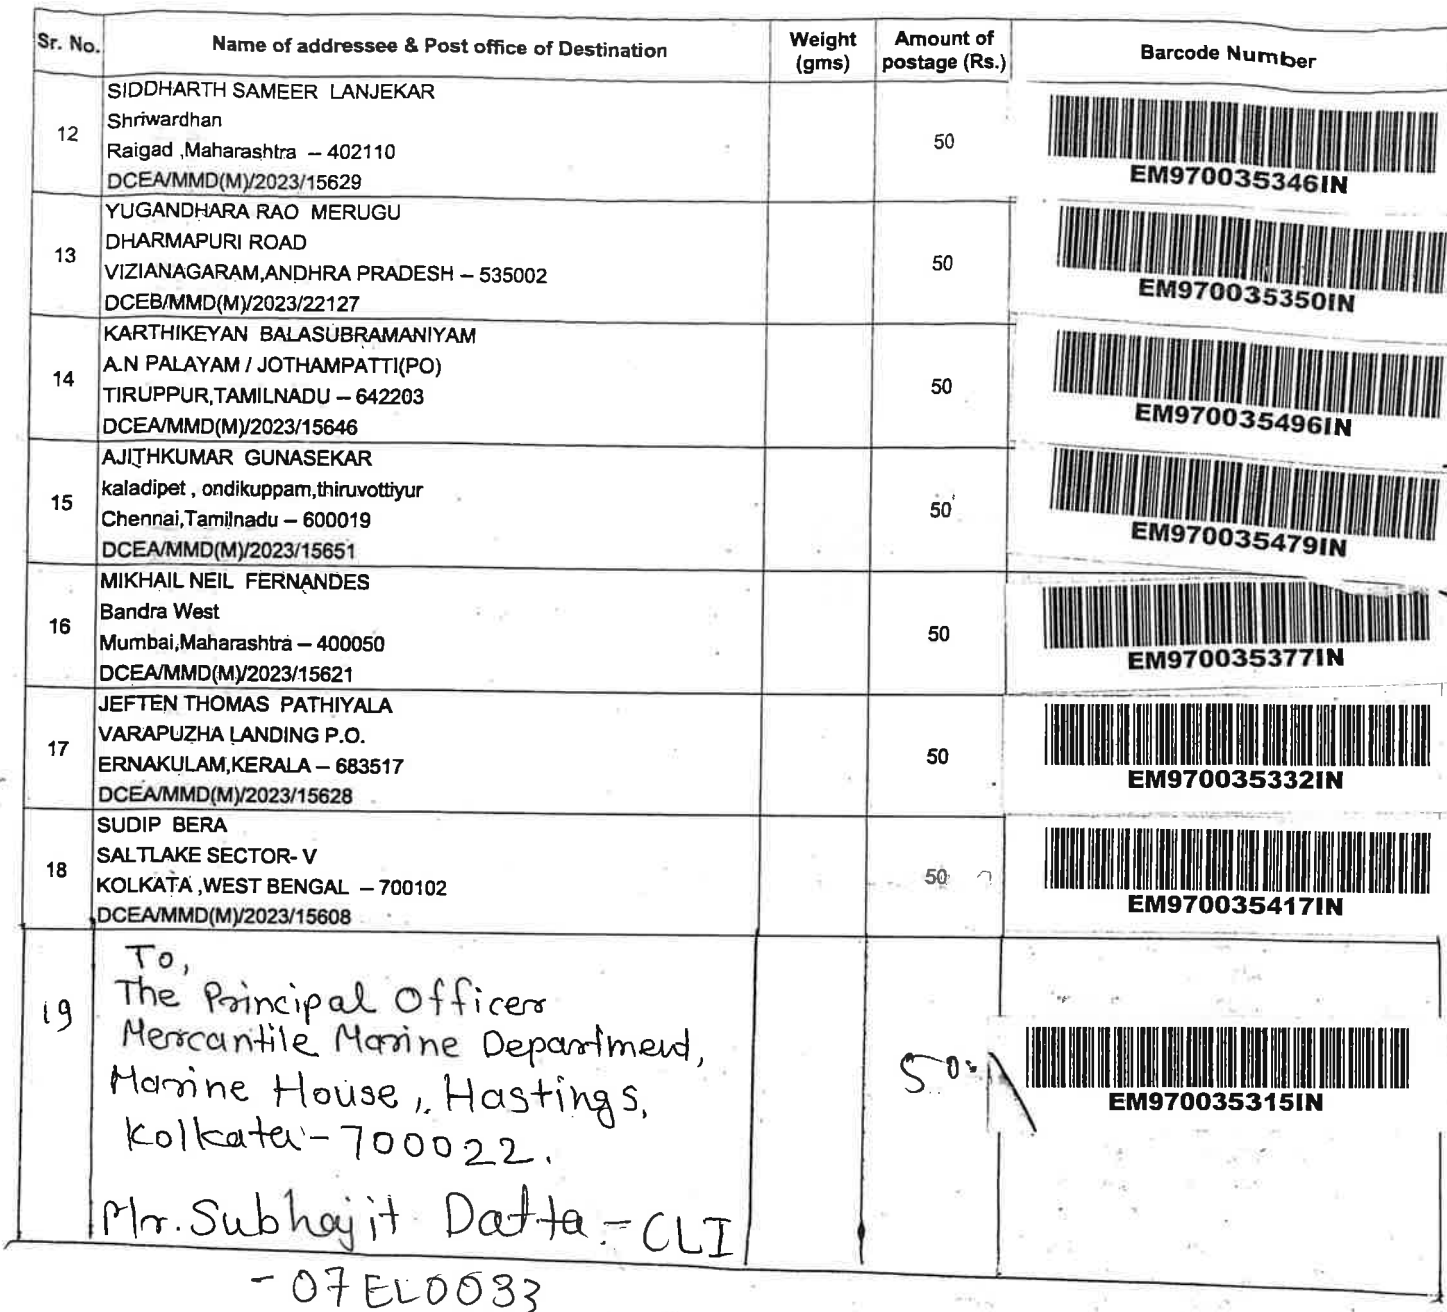 Sr. No. Name of addressee & Post office of Destination Weight (gms) Amount of postage (Rs.) Barcode Number
12
SIDDHARTH SAMEER LANJEKAR
Shriwardhan
Raigad ,Maharashtra – 402110
DCEA/MMD(M)/2023/15629
50
EM970035346IN
13
YUGANDHARA RAO MERUGU
DHARMAPURI ROAD
VIZIANAGARAM,ANDHRA PRADESH – 535002
DCEB/MMD(M)/2023/22127
50
EM970035350IN
14
KARTHIKEYAN BALASUBRAMANIYAM
A.N PALAYAM / JOTHAMPATTI(PO)
TIRUPPUR,TAMILNADU – 642203
DCEA/MMD(M)/2023/15646
50
EM970035496IN
15
AJITHKUMAR GUNASEKAR
kaladipet , ondikuppam,thiruvottiyur
Chennai,Tamilnadu – 600019
DCEA/MMD(M)/2023/15651
50
EM970035479IN
16
MIKHAIL NEIL FERNANDES
Bandra West
Mumbai,Maharashtra – 400050
DCEA/MMD(M)/2023/15621
50
EM970035377IN
17
JEFTEN THOMAS PATHIYALA
VARAPUZHA LANDING P.O.
ERNAKULAM,KERALA – 683517
DCEA/MMD(M)/2023/15628
50
EM970035332IN
18
SUDIP BERA
SALTLAKE SECTOR- V
KOLKATA ,WEST BENGAL – 700102
DCEA/MMD(M)/2023/15608
50
EM970035417IN
19
To,
The Principal Officer
Mercantile Marine Department,
Marine House, Hastings,
Kolkata - 700022.
Mr. Subhajit Datta - CLI
- 07EL0033
50
EM970035315IN